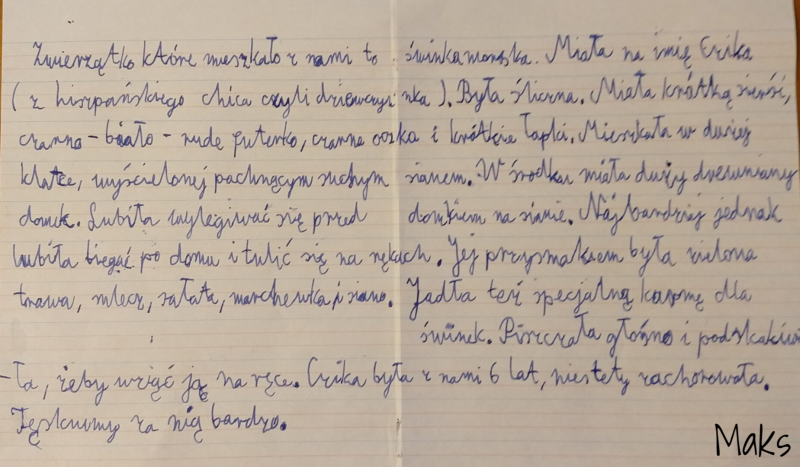 Zwierzątko które mieszkało z nami to świnka morska. Miała na imię Erika
( z hiszpańskiego chica czyli dziewczynka ). Była śliczna. Miała krótką sierść,
czarno - biało - rude futerko, czarne oczka i krótkie łapki. Mieszkała w dużej
klatce, wyścielonej pachnącym suchym sianem. W środku miała duży drewniany
domek. Lubiła wylegiwać się przed domkiem na sianie. Najbardziej jednak
lubiła biegać po domu i tulić się na rękach. Jej przysmakiem była zielona
trawa, mlecz, sałata, marchewka i siano. Jadła też specjalną karmę dla
świnek. Piszczała głośno i podskakiwa
-ła, żeby wziąć ją na ręce. Erika była z nami 6 lat, niestety zachorowała.
Tęsknimy za nią bardzo.
Maks